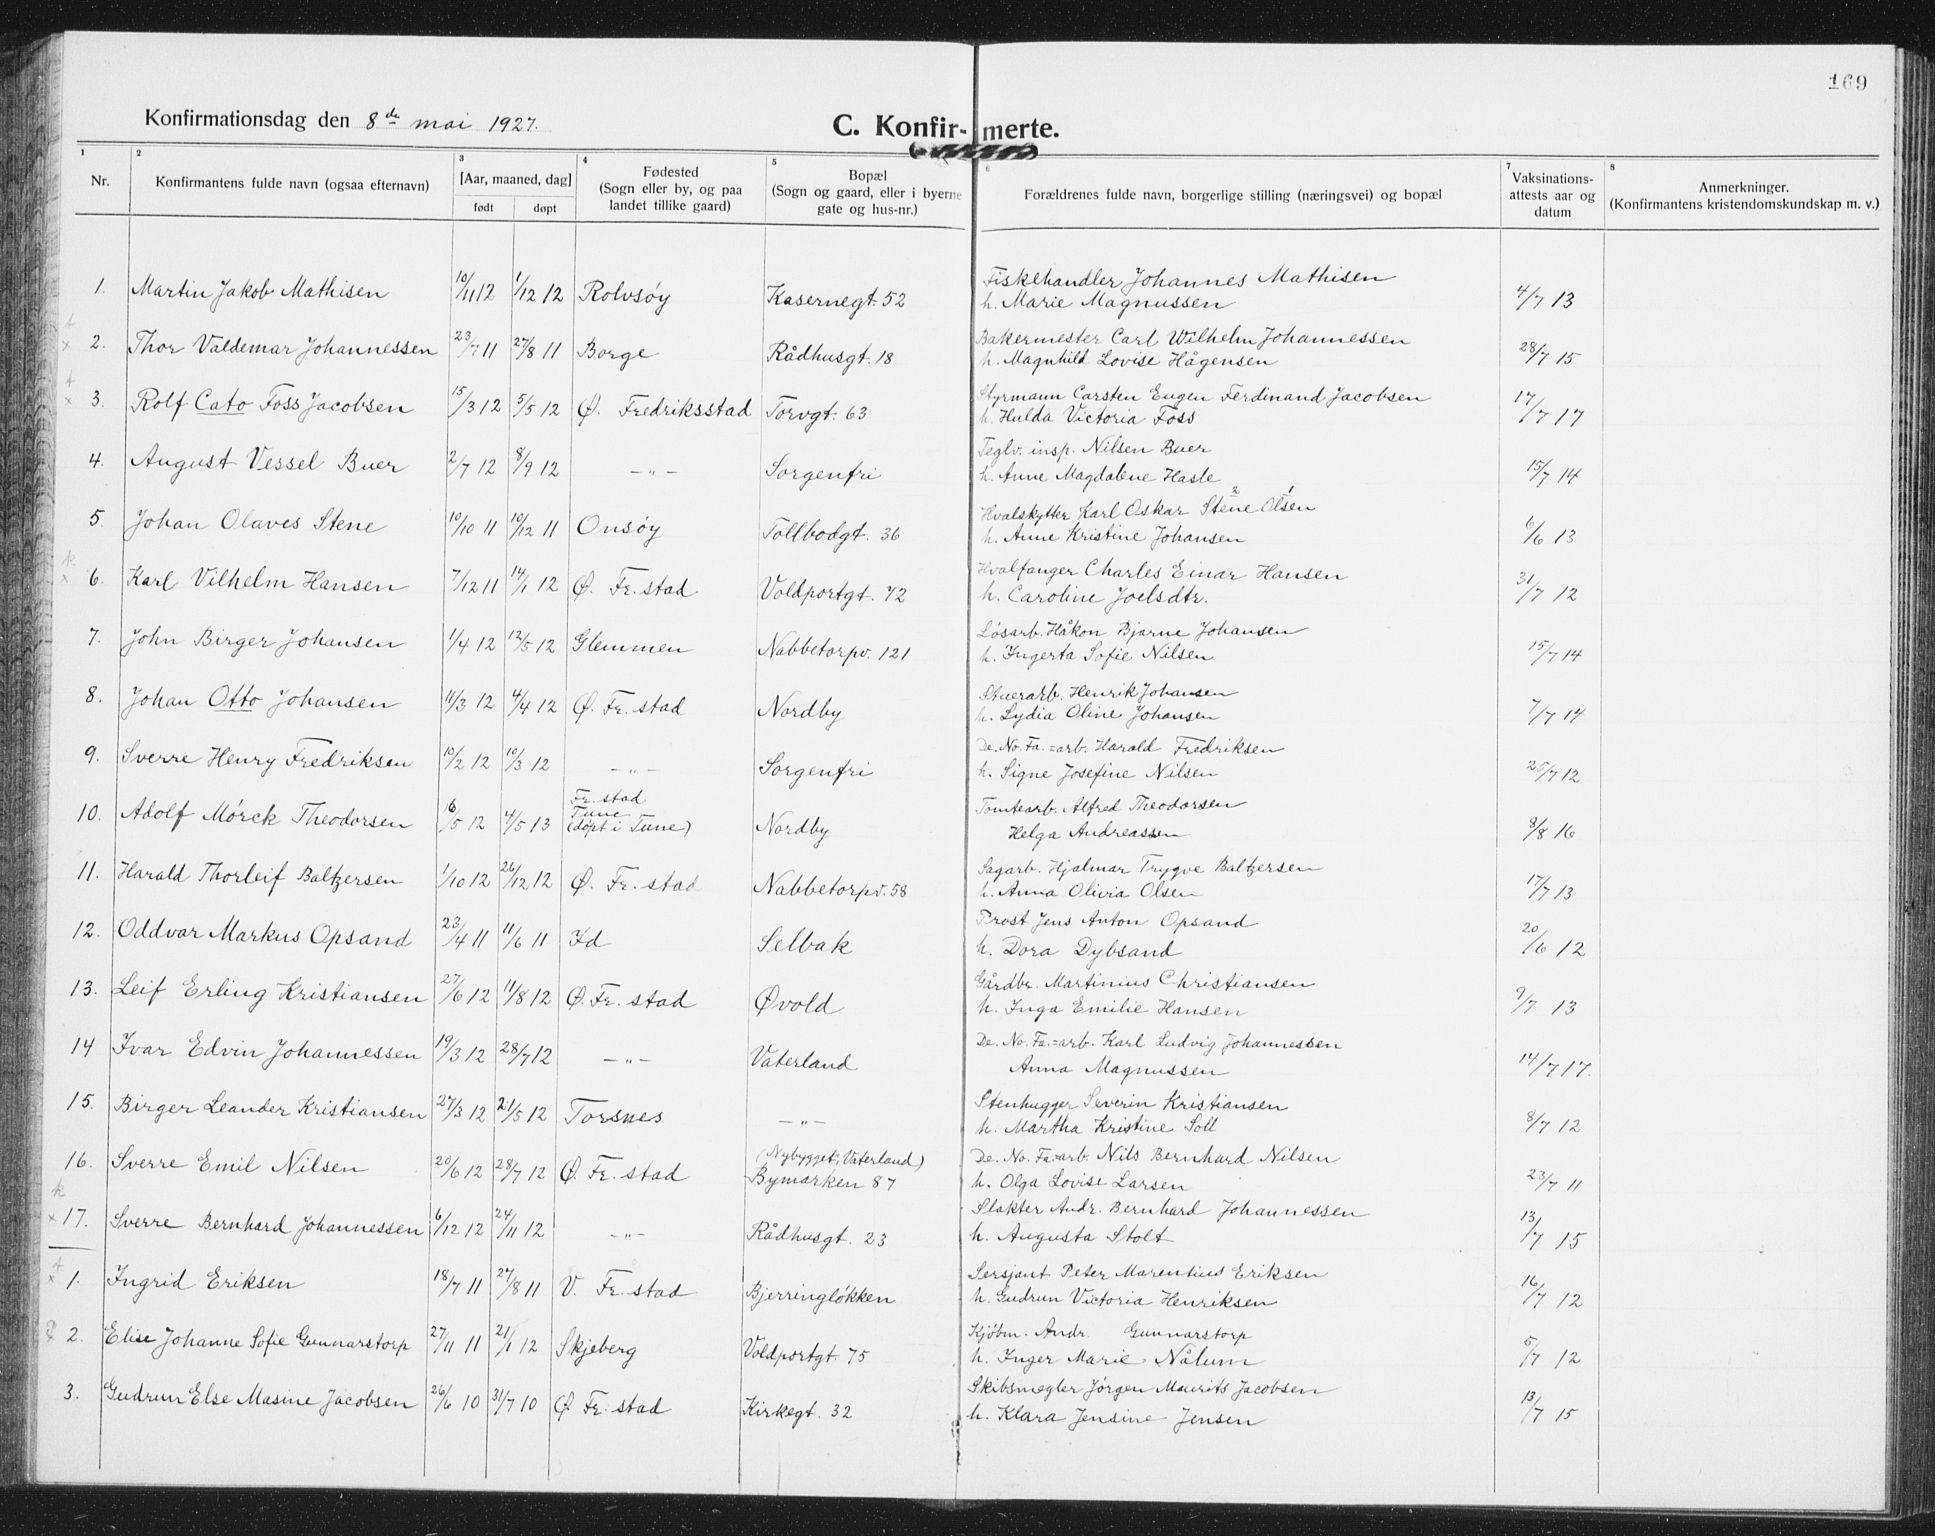 169
Konfirmationsdag den 8de mai 1927.
C. Konfir-merte.
1 2 3 4 5 6 7 8
Nr.
Konfirmantens fulde navn (ogsaa efternavn)
[Aar, maaned, dag]
født døpt
Fødested
(Sogn eller by, og paa
landet tillike gaard)
Bopæl
(Sogn og gaard, eller i byerne
gate og hus-nr.)
Forældrenes fulde navn, borgerlige stilling (næringsvei) og bopæl
Vaksinations-
attests aar og
datum
Anmerkninger.
(Konfirmantens kristendomskundskap m. v.)
1. Martin Jakob Mathisen 10/11 12 1/12 12 Rolvsøy Kasernegt. 52 Fiskehandler Johannes Mathisen
h. Marie Magnussen 4/7 13
2. Thor Valdemar Johannessen 23/7 11 27/8 11 Borge Rådhusgt. 18 Bakermester Carl Wilhelm Johannessen
h. Magnhild Lovise Hågensen 28/7 15
3. Rolf Cato Foss Jacobsen 15/3 12 5/5 12 Ø. Fredriksstad Torvgt. 63 Styrmann Carsten Eugen Ferdinand Jacobsen
h. Hulda Victoria Foss 17/7 17
4. August Vessel Buer 2/7 12 8/9 12 -"- Sorgenfri Teglv. insp. Nilsen Buer
h. Anne Magdalene Hasle 15/7 14
5. Johan Olaves Stene 10/10 11 10/12 11 Onsøy Tollbodgt. 36 Hvalskytter Karl Oskar Stene 2 Olsen 1
h. Anne Kristine Johansen 6/6 13
6. Karl Vilhelm Hansen 7/12 11 14/1 12 Ø. Fr.stad Voldportgt. 72 Hvalfanger Charles Einar Hansen
h. Caroline Joelsdtr. 31/7 12
7. John Birger Johansen 1/4 12 12/5 12 Glemmen Nabbetorpv. 121 Løsarb. Håkon Bjarne Johansen
h. Ingerta Sofie Nilsen 15/7 14
8. Johan Otto Johansen 11/3 12 4/4 12 Ø. Fr.stad Nordby Stuerarb. Henrik Johansen
h. Lydia Oline Johansen 7/7 14
9. Sverre Henry Fredriksen 10/2 12 10/3 12 -"- Sorgenfri De. No. Fa.=arb. Harald Fredriksen
h. Signe Josefine Nilsen 25/7 12
10. Adolf Mørck Theodorsen 16/5 12 4/5 13 Fr.stad
Tune
(døpt i Tune) Nordby Tomtearb. Alfred Theodorsen
Helga Andreassen 8/8 16
11. Harald Thorleif Baltzersen 1/10 12 26/12 12 Ø. Fr.stad Nabbetorpv. 58 Sagarb. Hjalmar Trygve Baltzersen
h. Anna Olivia Olsen 17/7 13
12. Oddvar Markus Opsand 23/4 11 11/6 11 Id Selbak Prost Jens Anton Opsand
h. Dora Dybsand 20/6 12
13. Leif Erling Kristiansen 27/6 12 11/8 12 Ø. Fr.stad Øvold Gårdbr. Martinius Christiansen
h. Inga Emilie Hansen 9/7 13
14 Ivar Edvin Johannessen 19/3 12 28/7 12 -"- Vaterland De. No. Fa.=arb. Karl Ludvig Johannessen
Anna Magnussen 14/7 17.
15. Birger Leander Kristiansen 27/3 12 21/5 12 Torsnes -"- Stenhugger Severin Kristiansen
h. Martha Kristine Soll 8/7 12
16. Sverre Emil Nilsen 20/6 12 28/7 12 Ø. Fr.stad (Nybygget, Vaterland)
Bymarken 87 De. No. Fa=arb. Nils Bernhard Nilsen
h. Olga Lovise Larsen 23/7 11
17. Sverre Bernhard Johannessen 6/12 12 24/11 12 -"- Rådhusgt. 23 Slakter Andr. Bernhard Johannessen
h. Augusta Stolt 13/7 15
1. Ingrid Eriksen 18/7 11 27/8 11 V. Fr.stad Bjerringløkken Sersjant Peter Marentius Eriksen
h. Gudrun Victoria Henriksen 16/7 12
2. Elise Johanne Sofie Gunnarstorp 27/11 11 21/1 12 Skjeberg Voldportgt. 75 Kjøbm. Andr. Gunnarstorp
h. Inger Marie Nålum 5/7 12
3. Gudrun Else Masine Jacobsen 26/6 10 31/7 10 Ø Fr.stad Kirkegt. 32 Skibsmegler Jørgen Maurits Jacobsen
h. Klara Jensine Jensen 13/7 15